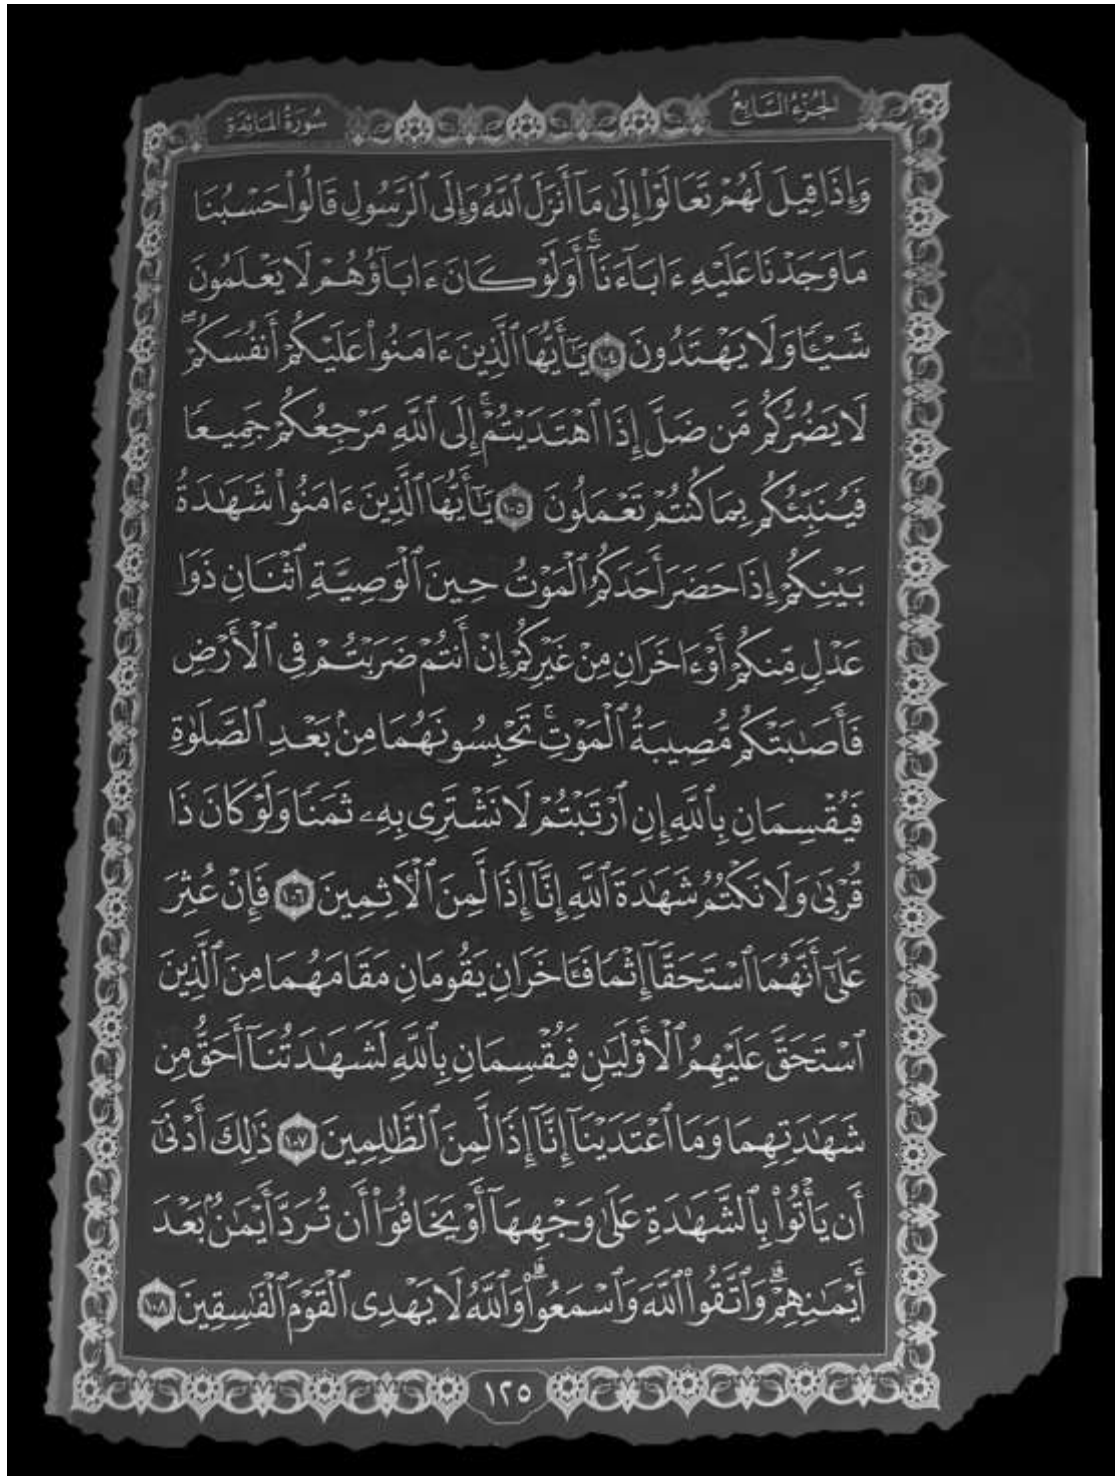 الجزء السابع
سورة المائدة
وَإِذَا قِيلَ لَهُمْ تَعَالَوْا۟ إِلَىٰ مَآ أَنزَلَ ٱللَّهُ وَإِلَى ٱلرَّسُولِ قَالُوا۟ حَسْبُنَا
مَا وَجَدْنَا عَلَيْهِ ءَابَآءَنَآۚ أَوَلَوْ كَانَ ءَابَآؤُهُمْ لَا يَعْلَمُونَ
شَيْـًٔا وَلَا يَهْتَدُونَ ١٠٤ يَـٰٓأَيُّهَا ٱلَّذِينَ ءَامَنُوا۟ عَلَيْكُمْ أَنفُسَكُمْۖ
لَا يَضُرُّكُم مَّن ضَلَّ إِذَا ٱهْتَدَيْتُمْۚ إِلَى ٱللَّهِ مَرْجِعُكُمْ جَمِيعًا
فَيُنَبِّئُكُم بِمَا كُنتُمْ تَعْمَلُونَ ١٠٥ يَـٰٓأَيُّهَا ٱلَّذِينَ ءَامَنُوا۟ شَهَـٰدَةُ
بَيْنِكُمْ إِذَا حَضَرَ أَحَدَكُمُ ٱلْمَوْتُ حِينَ ٱلْوَصِيَّةِ ٱثْنَانِ ذَوَا
عَدْلٍ مِّنكُمْ أَوْ ءَاخَرَانِ مِنْ غَيْرِكُمْ إِنْ أَنتُمْ ضَرَبْتُمْ فِى ٱلْأَرْضِ
فَأَصَـٰبَتْكُم مُّصِيبَةُ ٱلْمَوْتِۚ تَحْبِسُونَهُمَا مِنۢ بَعْدِ ٱلصَّلَوٰةِ
فَيُقْسِمَانِ بِٱللَّهِ إِنِ ٱرْتَبْتُمْ لَا نَشْتَرِى بِهِۦ ثَمَنًا وَلَوْ كَانَ ذَا
قُرْبَىٰ وَلَا نَكْتُمُ شَهَـٰدَةَ ٱللَّهِ إِنَّآ إِذًا لَّمِنَ ٱلْـَٔاثِمِينَ ١٠٦ فَإِنْ عُثِرَ
عَلَىٰٓ أَنَّهُمَا ٱسْتَحَقَّآ إِثْمًا فَـَٔاخَرَانِ يَقُومَانِ مَقَامَهُمَا مِنَ ٱلَّذِينَ
ٱسْتَحَقَّ عَلَيْهِمُ ٱلْأَوْلَيَـٰنِ فَيُقْسِمَانِ بِٱللَّهِ لَشَهَـٰدَتُنَآ أَحَقُّ مِن
شَهَـٰدَتِهِمَا وَمَا ٱعْتَدَيْنَآ إِنَّآ إِذًا لَّمِنَ ٱلظَّـٰلِمِينَ ١٠٧ ذَٰلِكَ أَدْنَىٰٓ
أَن يَأْتُوا۟ بِٱلشَّهَـٰدَةِ عَلَىٰ وَجْهِهَآ أَوْ يَخَافُوٓا۟ أَن تُرَدَّ أَيْمَـٰنٌۢ بَعْدَ
أَيْمَـٰنِهِمْۗ وَٱتَّقُوا۟ ٱللَّهَ وَٱسْمَعُوا۟ۗ وَٱللَّهُ لَا يَهْدِى ٱلْقَوْمَ ٱلْفَـٰسِقِينَ ١٠٨
١٢٥